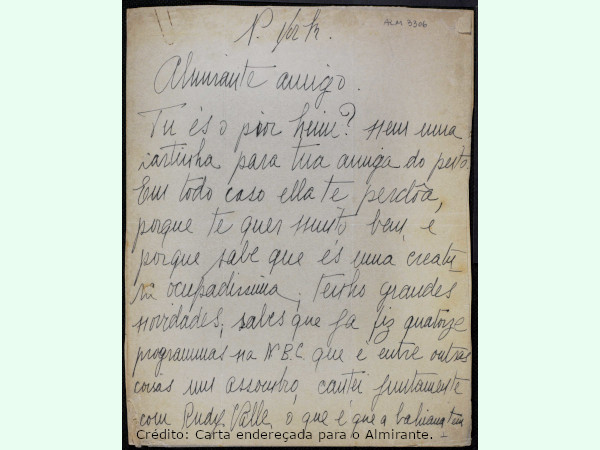 N. York.
ALM 3306
Almirante amigo.
Tu és o pior hein? Nem uma
cartinha para tua amiga do peito.
Em todo caso ella te perdôa,
porque te quer muito bem, e
porque sabe que és uma creatu
ra ocupadissima, tenho grandes
novidades, sabes que ja fiz quatorze
programmas na N.B.C. que é entre outras
coisas um assombro, cantei juntamente
com Rudy Valle, o que é que a bahiana tem
Crédito: Carta endereçada para o Almirante.
1